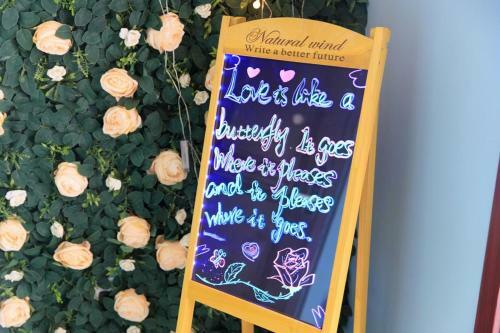 Natural wind
Write a better future
Love is like a
butterfly. It goes
Where it pleases
and it pleases
where it goes.